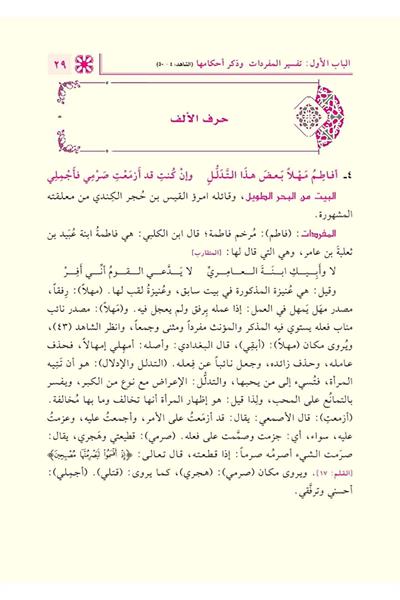 الباب الأول: تفسير المفردات وذكر أحكامها (الشاهد: ٤ - ٥٠) ٢٩
حرف الألف
٤ـ أفاطِمُ مَهْلاً بَعضَ هذا التَّدَلُّلِ وإنْ كُنتِ قد أزمَعْتِ صَرْمي فأَجْمِلي
البيت من البحر الطويل، وقائله امرؤ القيس بن حُجر الكِندي من معلقته
المشهورة.
المفردات: (فاطم): مُرخم فاطمة؛ قال ابن الكلبي: هي فاطمةُ ابنة عُبَيد بن
ثعلبةَ بن عامر، وهي التي قال لها: [المتقارب]
لا وأبيكِ ابنَةَ العامريِّ لا يَدَّعي القومُ أنّي أفِرْ
وقيل: هي عُنيزة المذكورة في بيت سابق، وعُنيزةُ لقب لها. (مهلاً): رِفقاً،
مصدر مهَل يَمهل في العمل: إذا عمله برِفق ولم يعجل فيه. و(مَهلاً): مصدر نائب
مناب فعله يستوي فيه المذكر والمؤنث مفرداً ومثنى وجمعاً، وانظر الشاهد (٤٣)،
ويُروى مكان (مهلاً): (أبقِي)، قال البغدادي: وأصله: أمهِلي إمهالاً، فحذف
عامله، وحذف زائده، وجعل نائباً عن فِعله. (التدلل والإدلال): هو أن تَتِيه
المرأة، فتُسيء إلى من يحبها، والتدلُّل: الإعراض مع نوع من الكبر، ويفسر
بالتمانُع على المحب، ولِذا قيل: هو إظهار المرأة أنها تخالف وما بها مُخالفة.
(أزمعتِ): قال الأصمعي: يقال: قد أزمَعتُ على الأمر، وأجمعتُ عليه، وعزمتُ
عليه، سواء، أي: جزمت وصمَّمت على فعله. (صرمي): قطيعتي وهَجري، يقال:
صرَمت الشيء أصرِمُه صرماً: إذا قطعته، قال تعالى: ﴿إِذْ أَقْسَمُوا لَيَصْرِمُنَّهَا مُصْبِحِينَ﴾
[القلم: ١٧]. ويروى مكان (صرمي): (هجري)، كما يروى: (قتلي). (أجمِلي):
أحسني وترفَّقي.